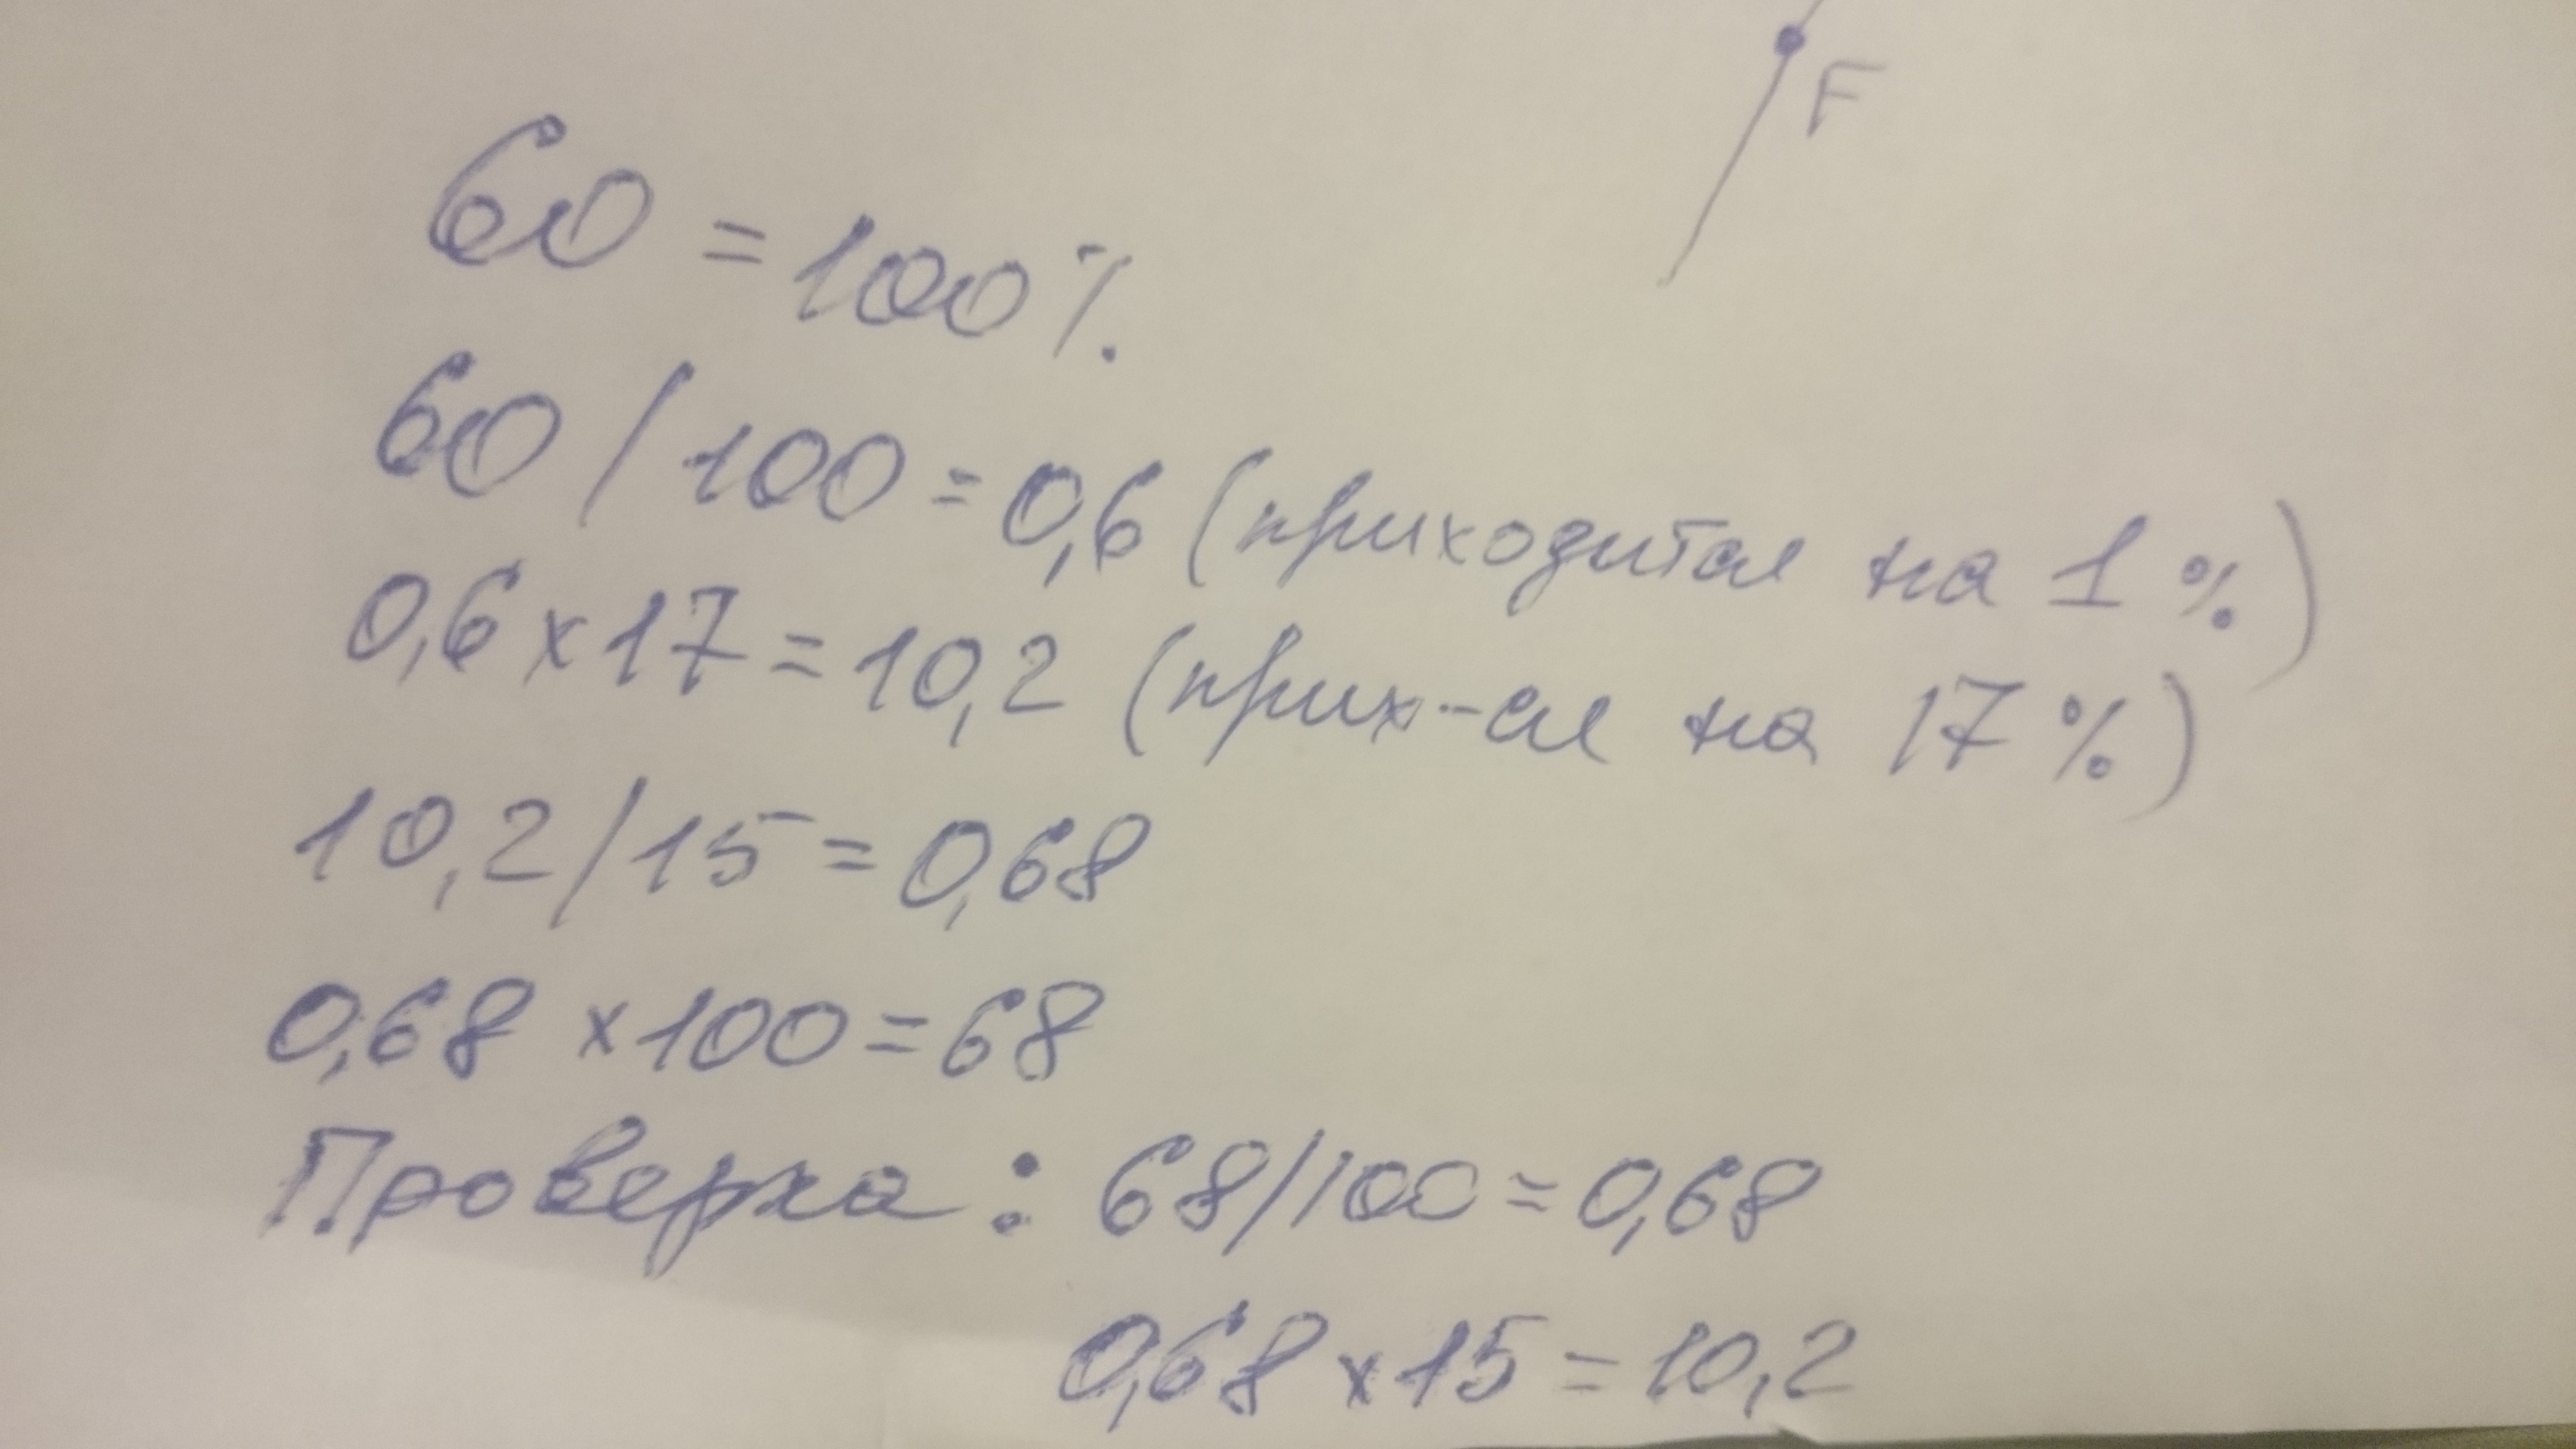 F
60 = 100%
60 / 100 = 0,6 (приходится на 1%)
0,6 x 17 = 10,2 (прих-ся на 17%)
10,2 / 15 = 0,68
0,68 x 100 = 68
Проверка: 68/100 = 0,68
0,68 x 15 = 10,2